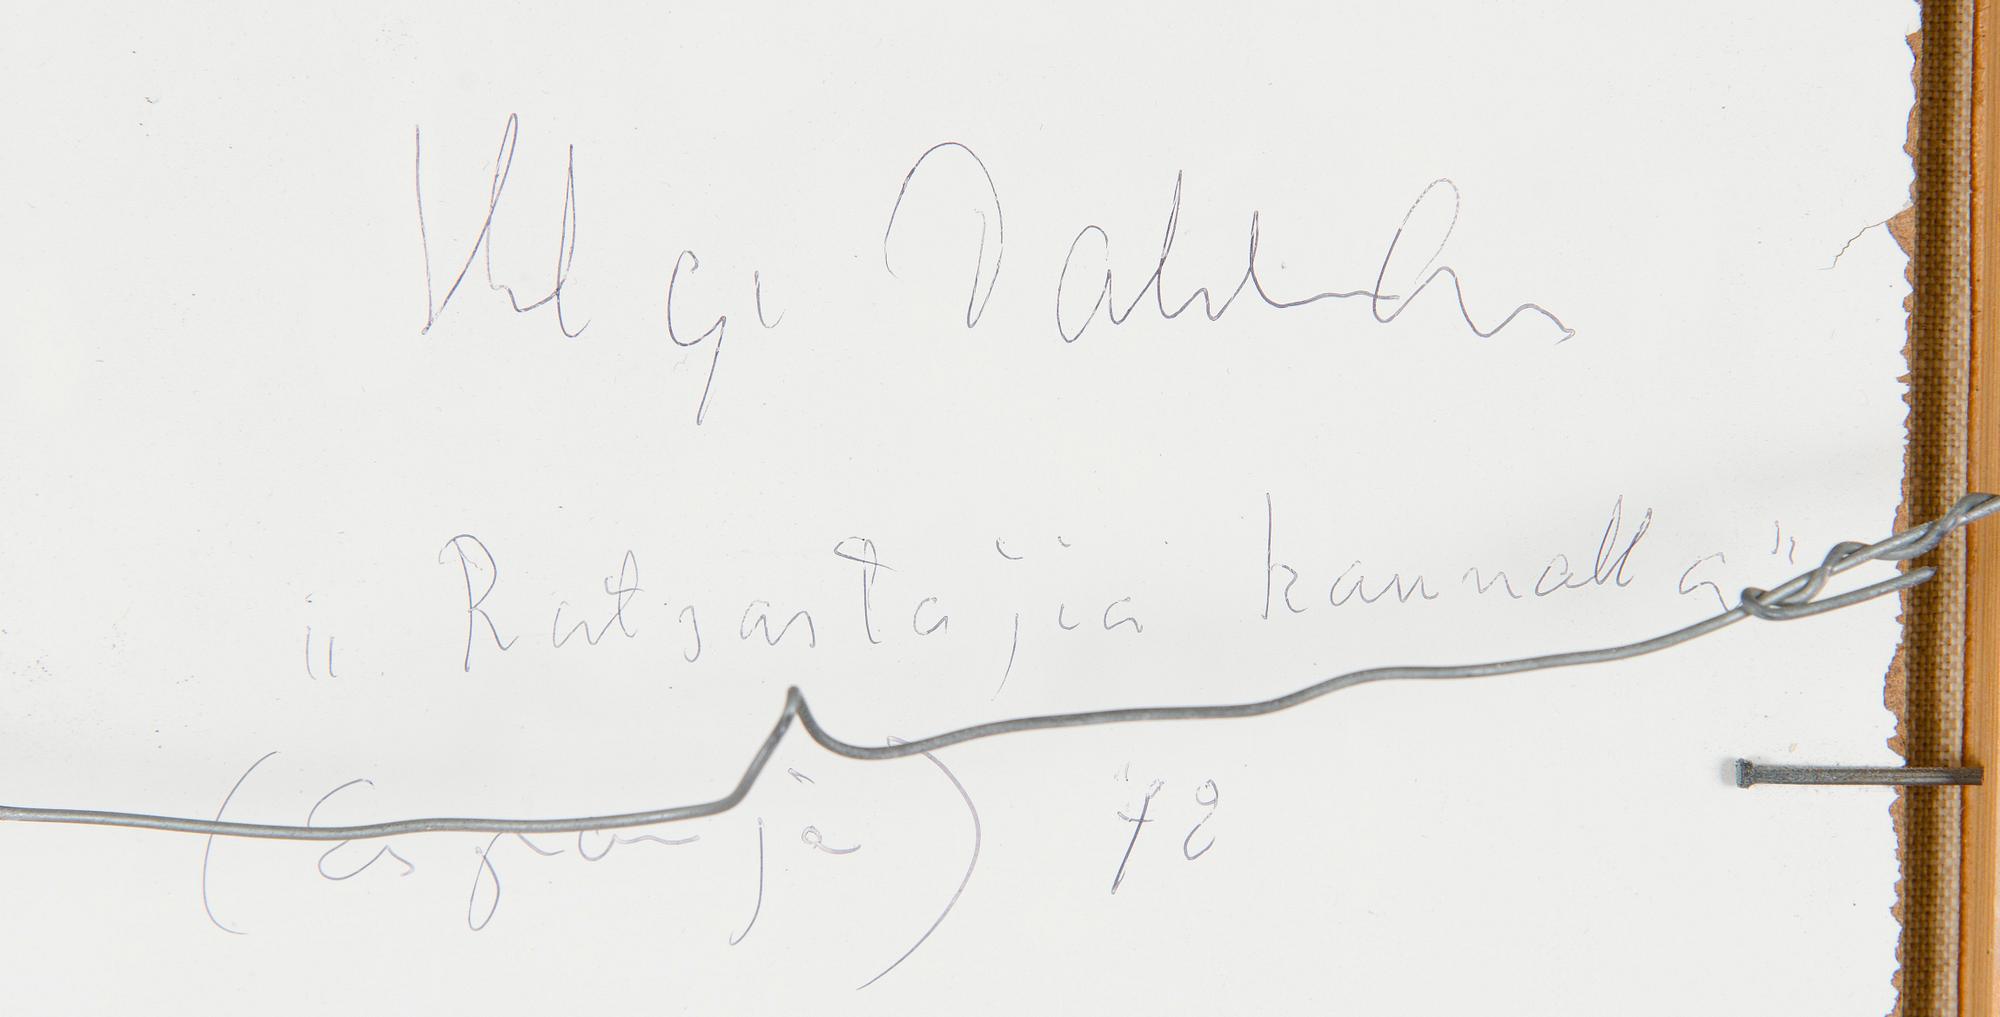 Helge Dahlman
„Ratsastajia kannalla"
(Espanja) 78